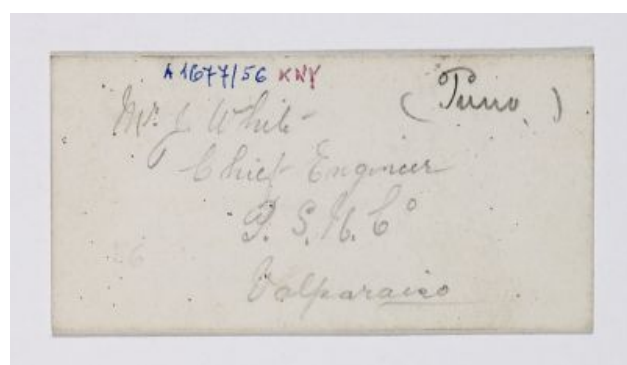 A 1677/56 KNY
(Puno)
Mr. J. White
Chief Engineer
P. S. N. Cº
Valparaiso